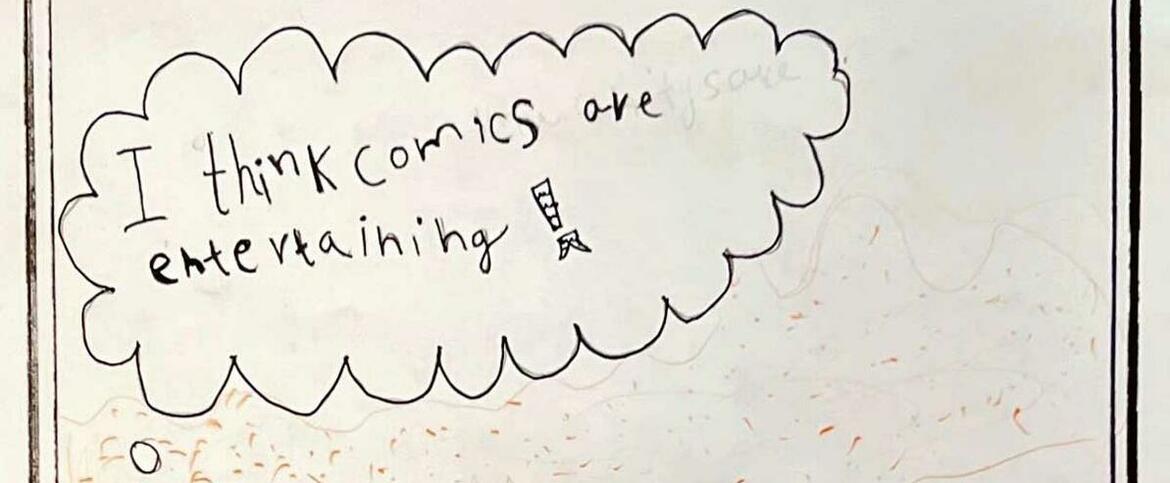 I think comics are
entertaining!